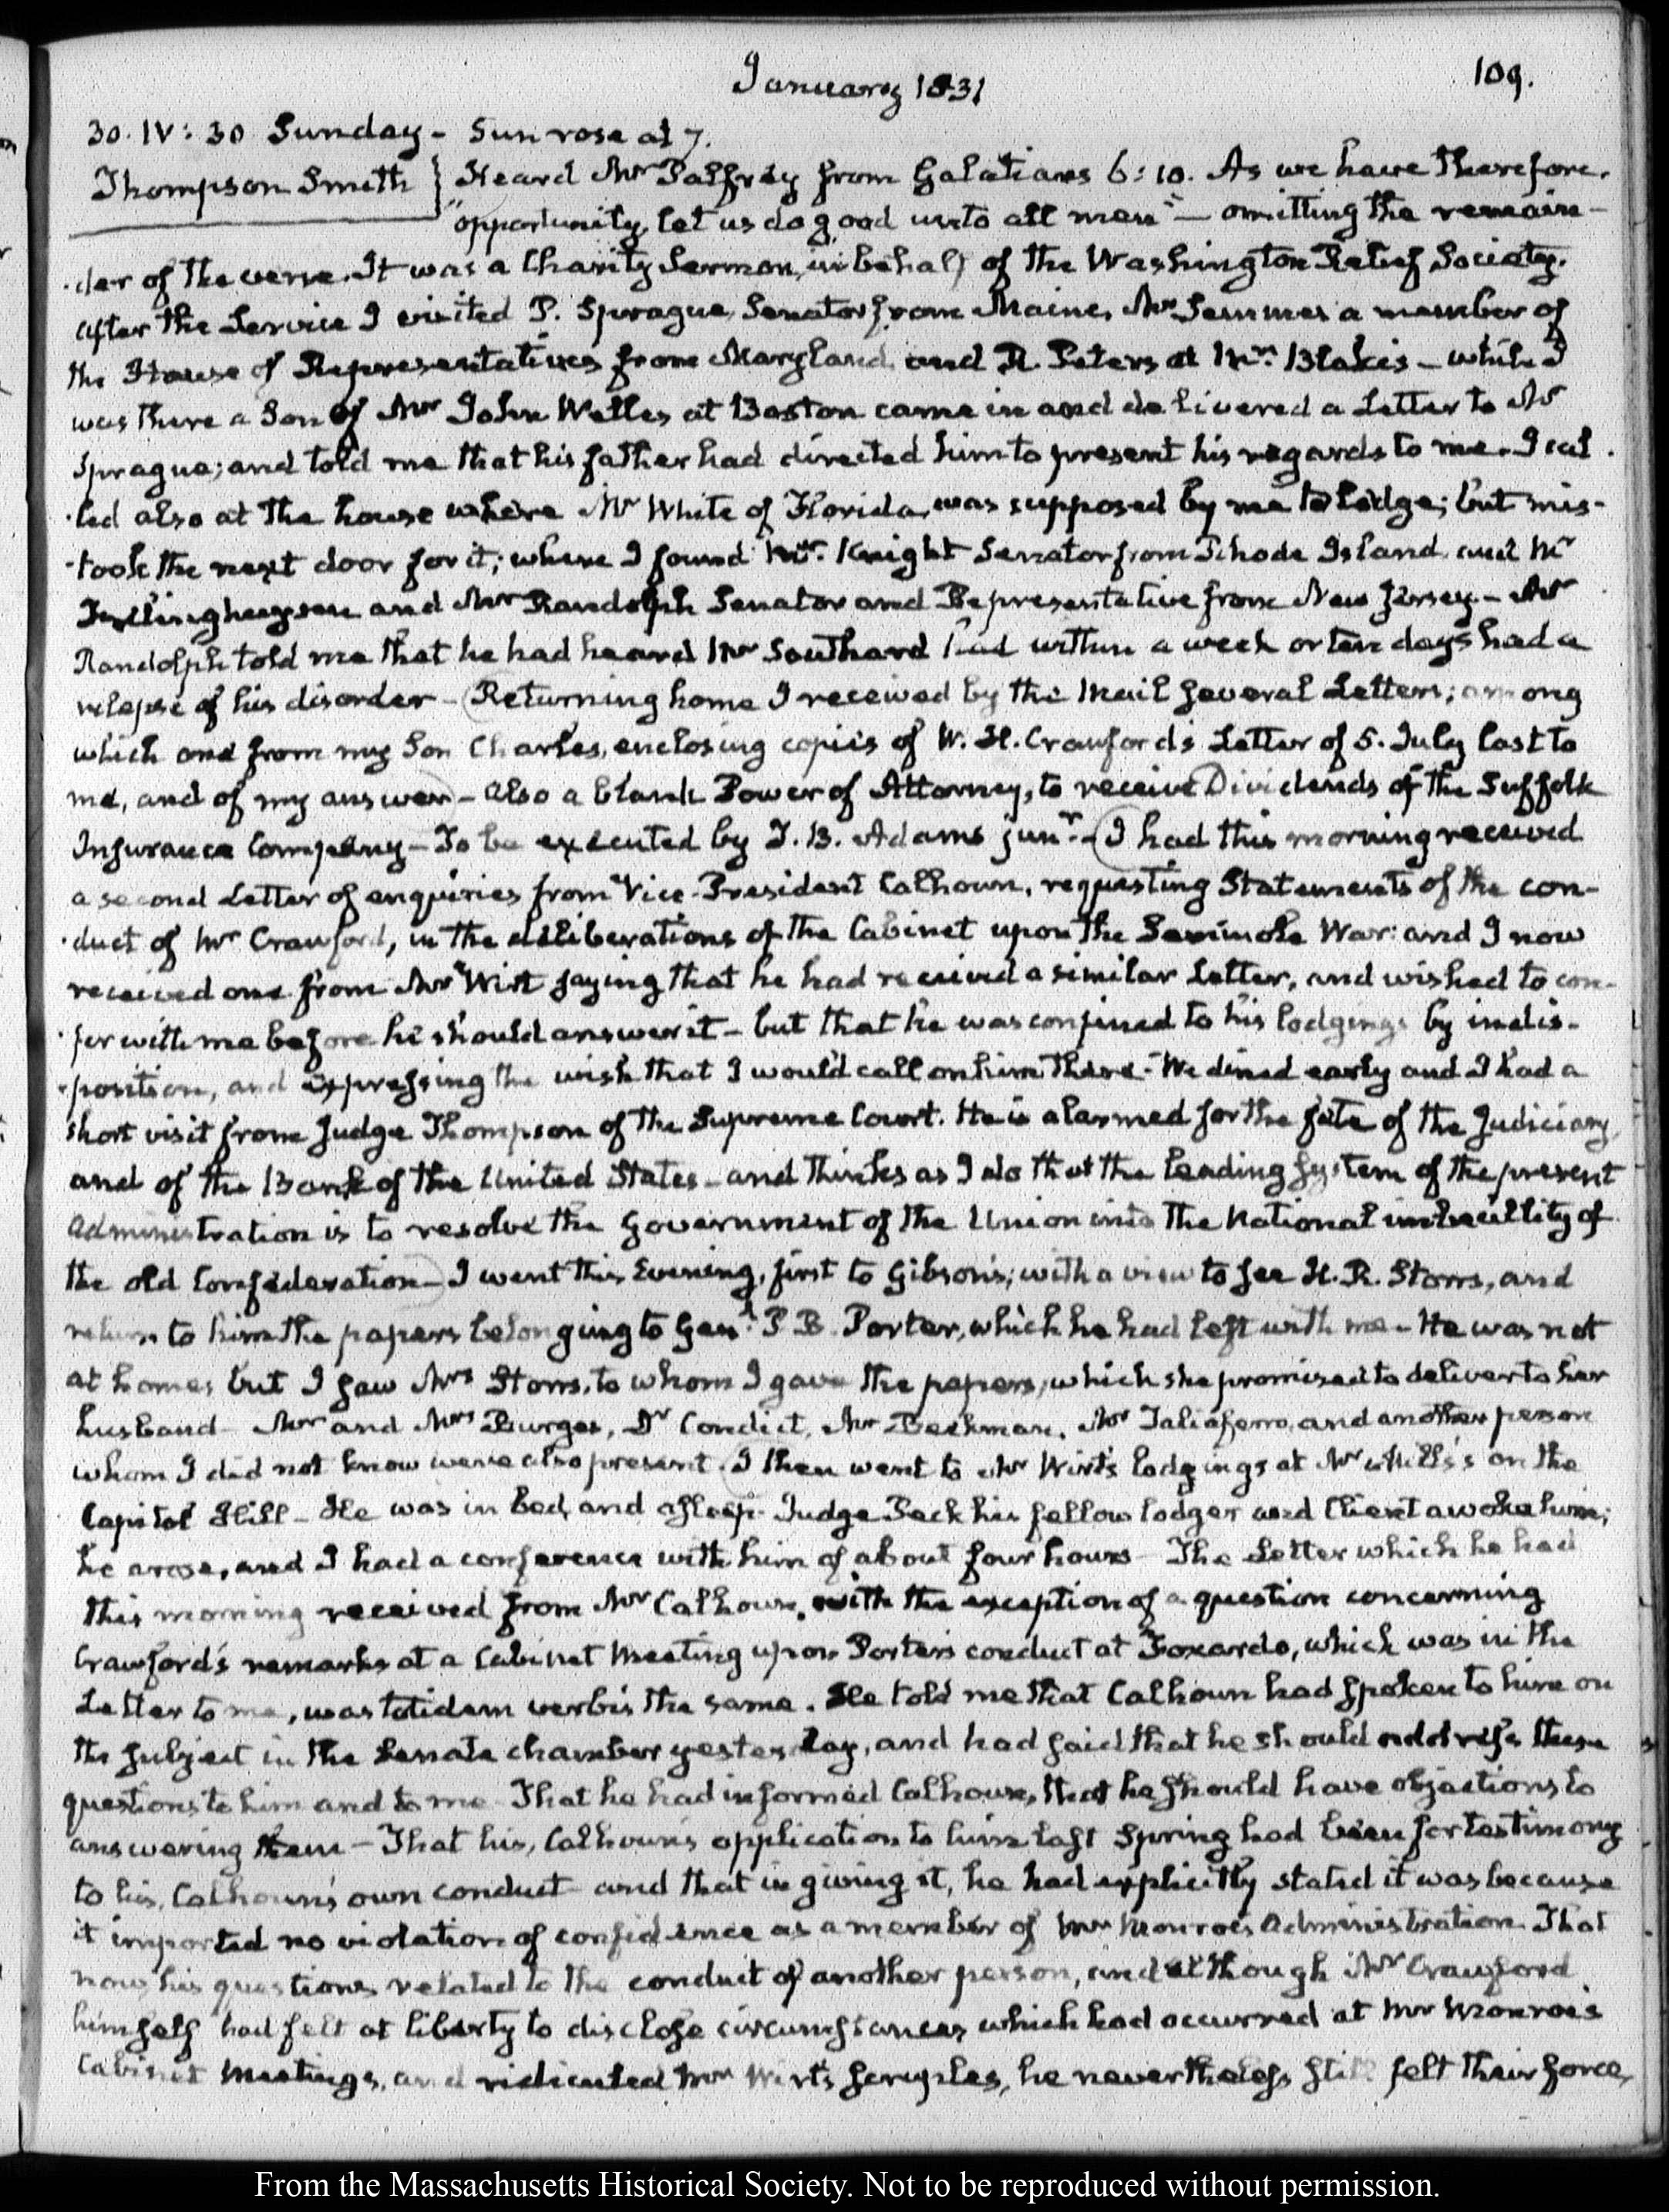 January 1831
109.
30. IV: 30 Sunday - Sun rose at 7.
Thompson Smith } Heard Mr Palfrey from Galatians 6:10. As we have therefore.
"opportunity, let us do good unto all men" — omitting the remain-
-der of the verse. It was a Charity Sermon, in behalf of the Washington Relief Society.
After the Service I visited P. Sprague, Senator from Maine, Mr Semmes a member of
the House of Representatives from Maryland, and R. Peters at Mrs. Blake's - while I
was there a Son of Mr John Welles at Boston came in and delivered a Letter to Mr
Sprague; and told me that his father had directed him to present his regards to me. I cal
-led also at the house where Mr White of Florida, was supposed by me to lodge; but mis-
-took the next door for it; where I found Mr. Knight Senator from Rhode Island, and Mr
Frelinghuysen and Mr Randolph Senator and Representative from New Jersey - Mr
Randolph told me that he had heard Mr Southard had within a week or ten days had a
relapse of his disorder - (Returning home I received by the Mail several Letters; among
which one from my Son Charles, enclosing copies of W. H. Crawford's Letter of 5. July last to
me, and of my answer) - also a blank Power of Attorney, to receive Dividends of the Suffolk
Insurance Company - To be executed by T. B. Adams junr. - (I had this morning received
a second Letter of enquiries from Vice-President Calhoun, requesting Statements of the con-
-duct of Mr Crawford, in the deliberations of the Cabinet upon the Seminole War: and I now
received one from Mr Wirt saying that he had received a similar Letter, and wished to con-
-fer with me before he should answer it - but that he was confined to his lodgings by indis-
-position, and expressing the wish that I would call on him there - We dined early and I had a
short visit from Judge Thompson of the Supreme Court. He is alarmed for the fate of the Judiciary,
and of the Bank of the United States - and thinks as I do that the leading system of the present
Administration is to resolve the Government of the Union into the National imbecility of
the old Confederation) I went this Evening, first to Gibson's; with a view to see H. R. Storrs, and
return to him the papers belonging to Genl. P. B. Porter, which he had left with me - He was not
at home, but I saw Mrs Storrs, to whom I gave the papers, which she promised to deliver to her
husband - Mr and Mrs Burges, Dr Condict, Mr Beekman, Mr Taliaferro, and another person
whom I did not know were also present. (I then went to Mr Wirt's lodgings at Mr Mills's on the
Capitol Hill - He was in bed, and asleep. Judge Peck his fellow lodger and Client awoke him;
he arose, and I had a conference with him of about four hours - The Letter which he had
this morning received from Mr Calhoun, with the exception of a question concerning
Crawford's remarks at a Cabinet Meeting upon Porter's conduct at Foxardo, which was in the
Letter to me, was totidem verbis the same. He told me that Calhoun had spoken to him on
the subject in the Senate chamber yesterday, and had said that he should address these
questions to him and to me - That he had informed Calhoun, that he should have objections to
answering them - That his, Calhoun's application to him last Spring had been for testimony
to his, Calhoun's own conduct and that in giving it, he had explicitly stated it was because
it imported no violation of confidence as a member of Mr Monroe's Administration. That
now his questions related to the conduct of another person, and although Mr Crawford
himself had felt at liberty to disclose circumstances which had occurred at Mr Monroe's
Cabinet Meetings, and ridiculed Mr Wirt's scruples, he nevertheless still felt their force,
From the Massachusetts Historical Society. Not to be reproduced without permission.